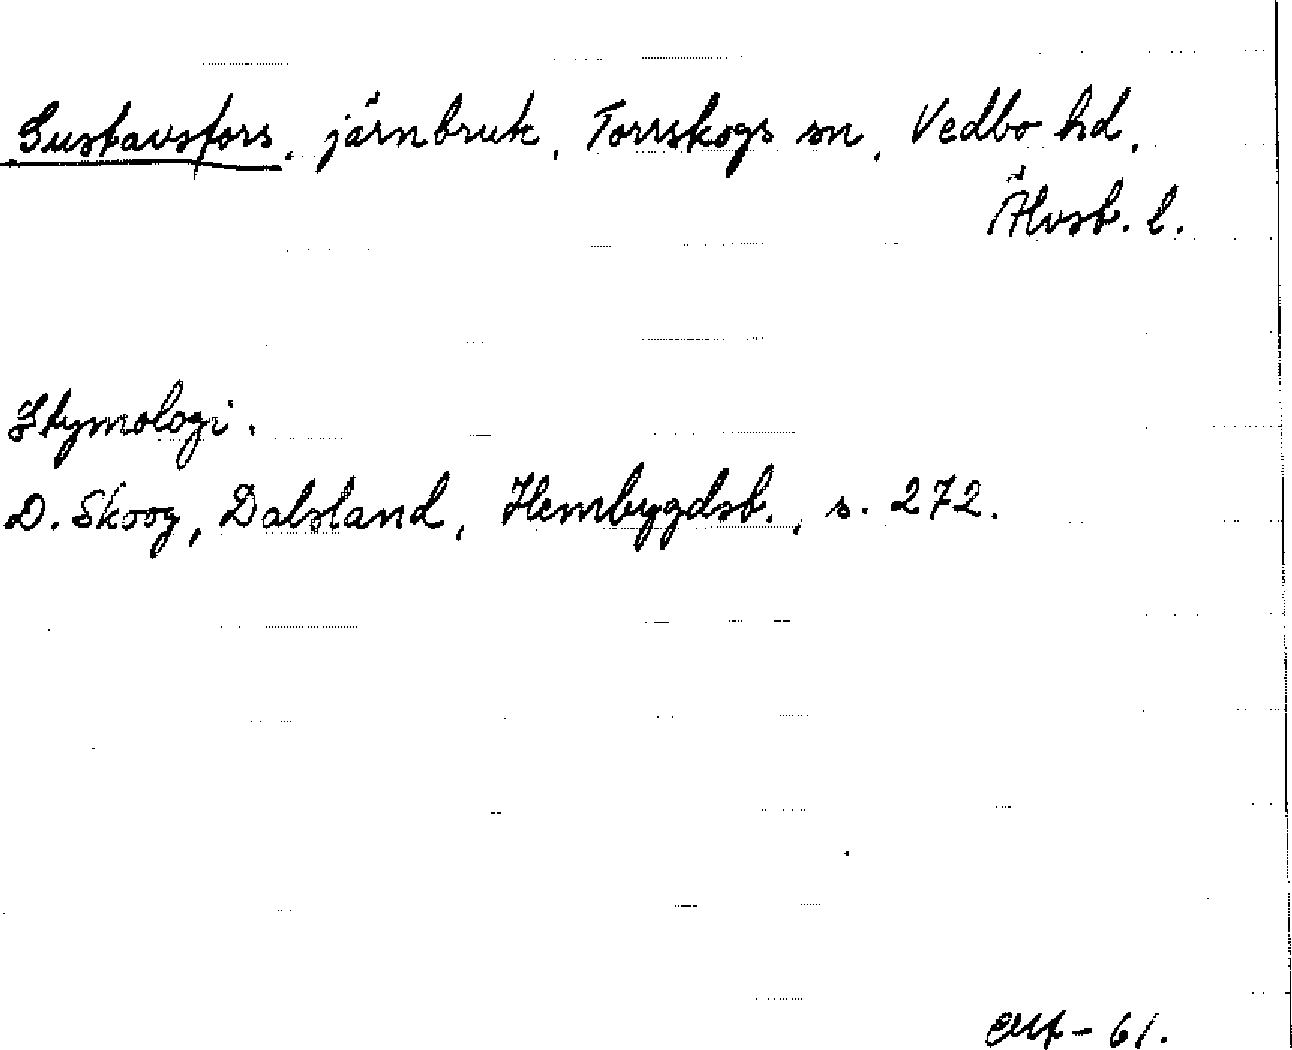 Gustavsfors, järnbruk, Torrskogs sn, Vedbo hd,
Älvsb. l.
Etymologi.
D. Skoog, Dalsland, Hembygdsb., s. 272.
- 61.